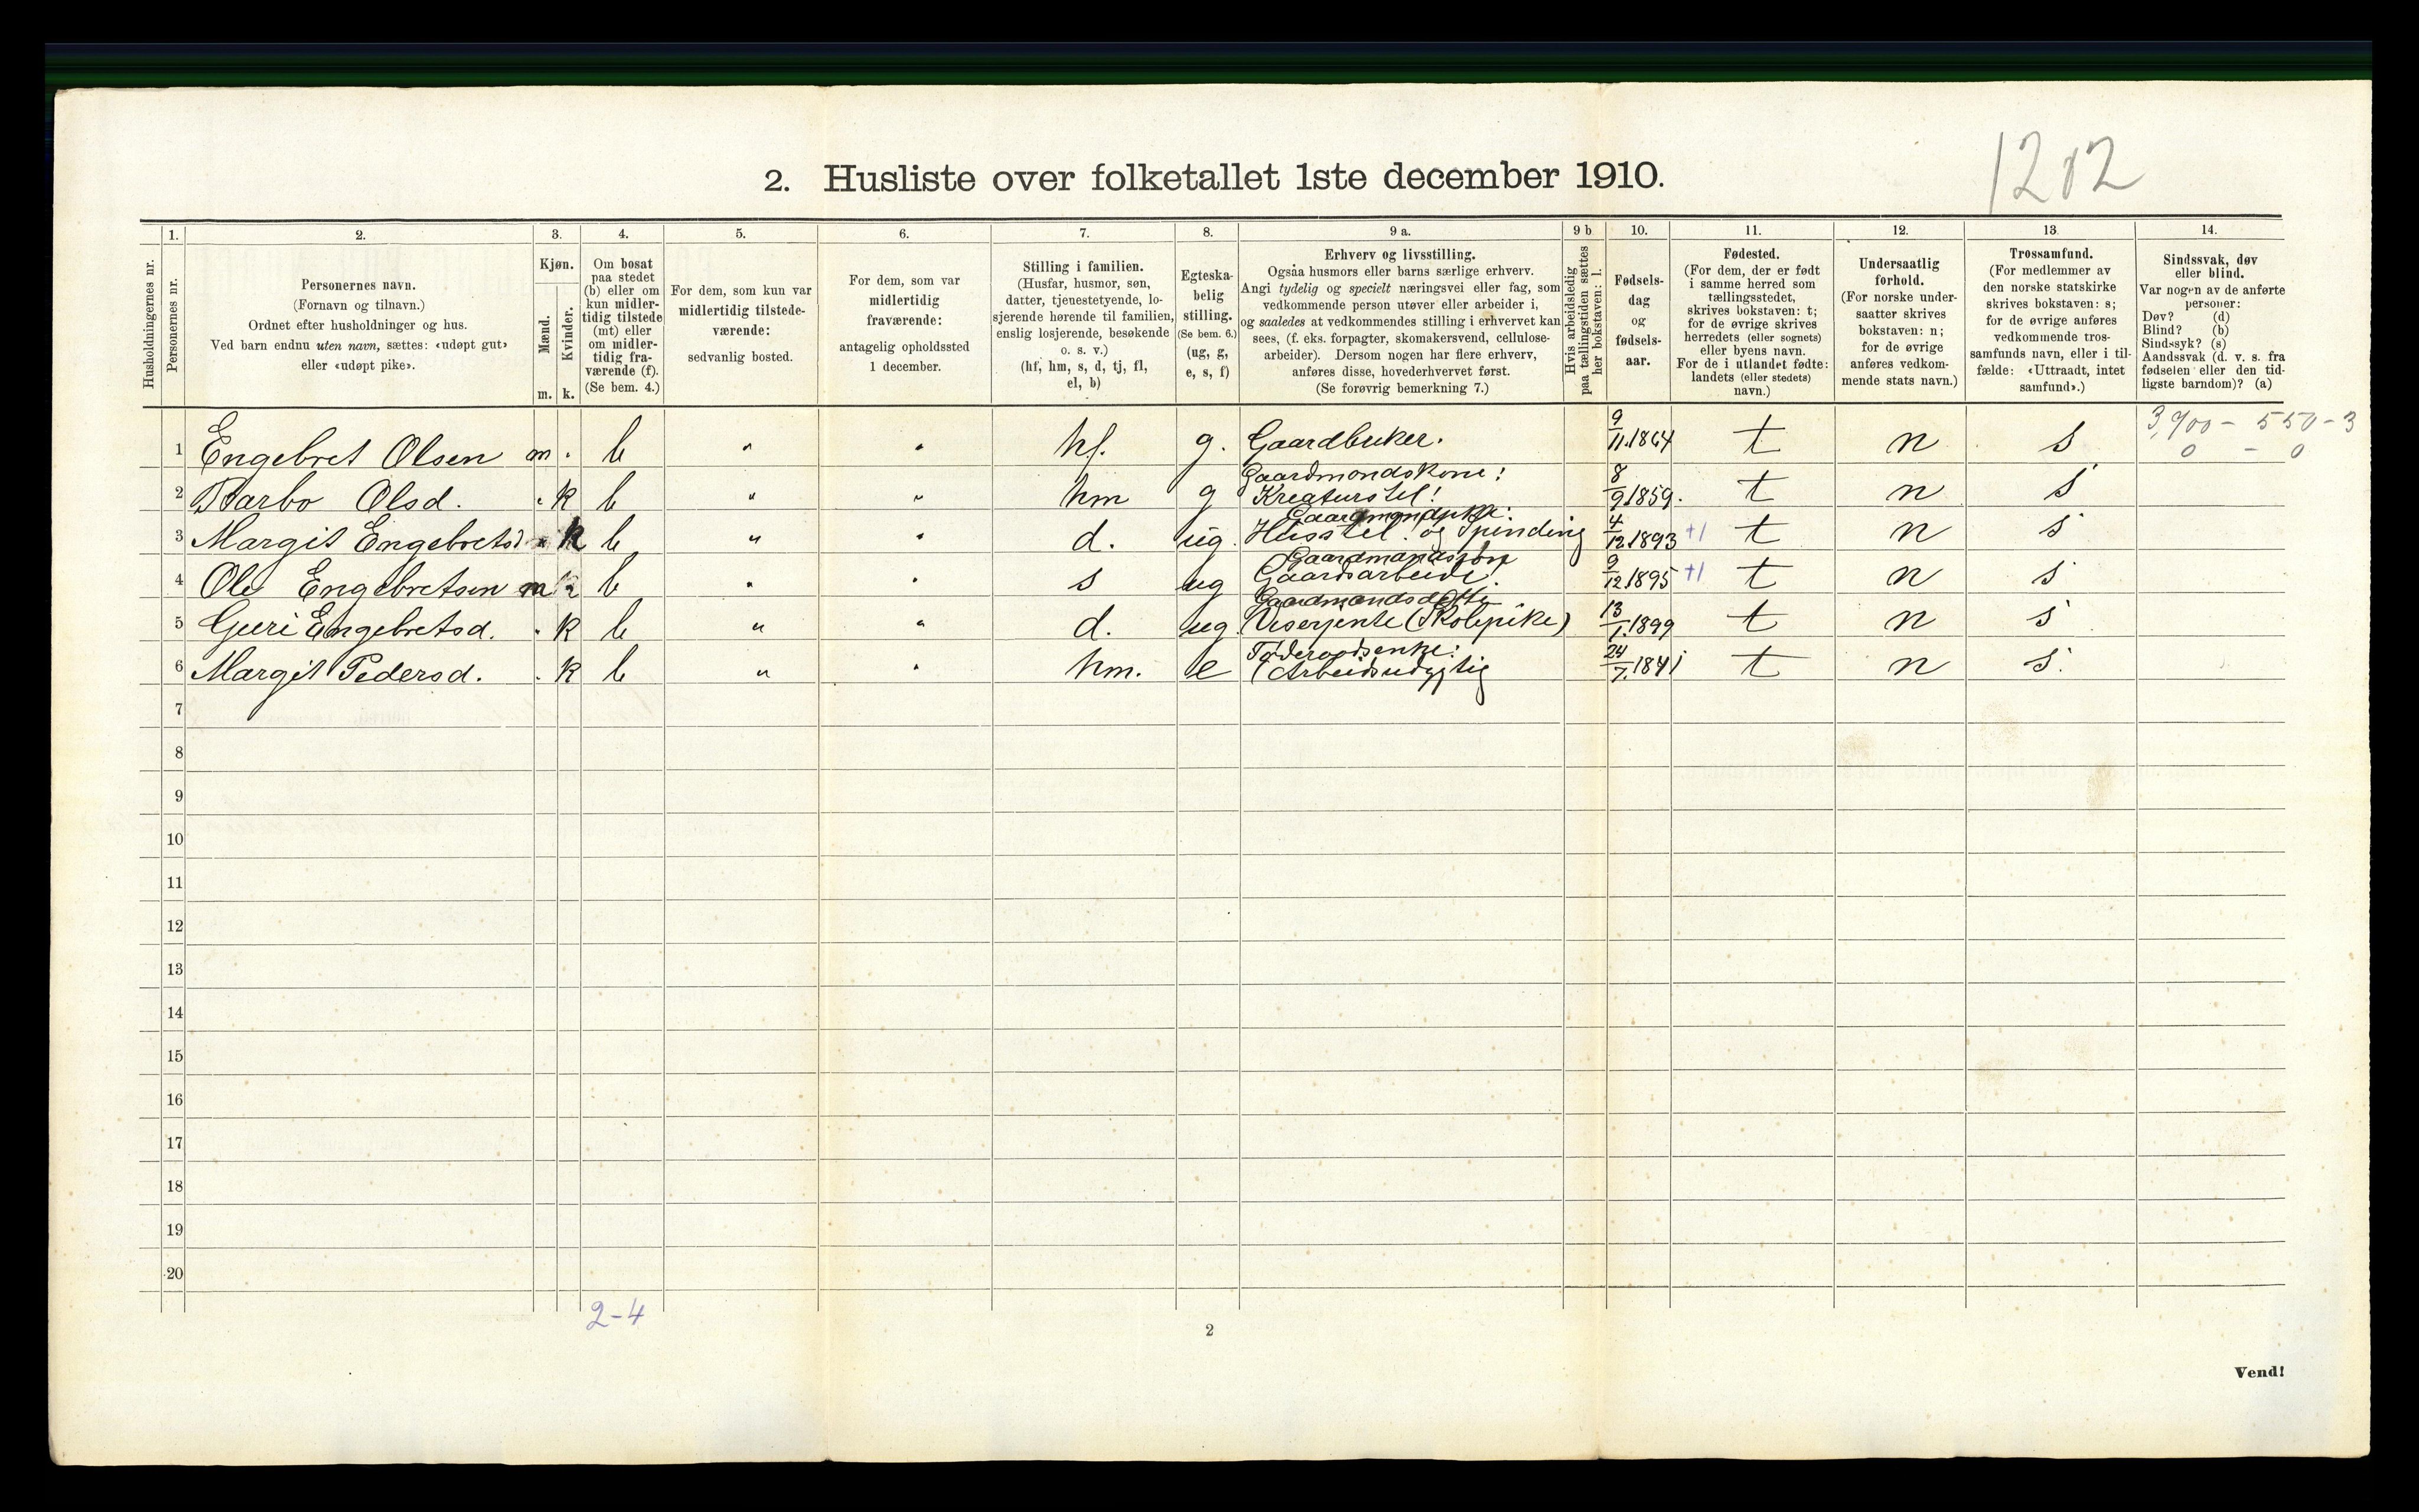 1282
2. Husliste over folketallet 1ste december 1910.
1. 2. 3. 4. 5. 6. 7. 8. 9 a. 9 b 10. 11. 12. 13. 14.
Husholdningernes nr.
Personernes nr.
Personernes navn.
(Fornavn og tilnavn.)
Ordnet efter husholdninger og hus.
Ved barn endnu uten navn, sættes: «udøpt gut»
eller «udøpt pike».
Kjøn.
Mænd.
Kvinder.
m. k.
Om bosat
paa stedet
(b) eller om
kun midler-
tidig tilstede
(mt) eller
om midler-
tidig fra-
værende (f).
(Se bem. 4.)
For dem, som kun var
midlertidig tilstede-
værende:
sedvanlig bosted.
For dem, som var
midlertidig
fraværende:
antagelig opholdssted
1 december.
Stilling i familien.
(Husfar, husmor, søn,
datter, tjenestetyende, lo-
sjerende hørende til familien,
enslig losjerende, besøkende
o. s. v.)
(hf, hm, s, d, tj, fl,
el, b)
Egteska-
belig
stilling.
(Se bem. 6.)
(ug, g,
e, s, f)
Erhverv og livsstilling.
Ogsåa husmors eller barns særlige erhverv.
Angi tydelig og specielt næringsvei eller fag, som
vedkommende person utøver eller arbeider i,
og saaledes at vedkommendes stilling i erhvervet kan
sees, (f. eks. forpagter, skomakersvend, cellulose-
arbeider). Dersom nogen har flere erhverv,
anføres disse, hovederhvervet først.
(Se forøvrig bemerkning 7.)
Hvis arbeidsledig
paa tællingstiden sættes
her bokstaven: l.
Fødsels-
dag
og
fødsels-
aar.
Fødested.
(For dem, der er født
i samme herred som
tællingsstedet,
skrives bokstaven: t;
for de øvrige skrives
herredets (eller sognets)
eller byens navn.
For de i utlandet fødte:
landets (eller stedets)
navn.)
Undersaatlig
forhold.
(For norske under-
saatter skrives
bokstaven: n;
for de øvrige
anføres vedkom-
mende stats navn.)
Trossamfund.
(For medlemmer av
den norske statskirke
skrives bokstaven: s;
for de øvrige anføres
vedkommende tros-
samfunds navn, eller i til-
fælde: «Uttraadt, intet
samfund».)
Sindssvak, døv
eller blind.
Var nogen av de anførte
personer:
Døv? (d)
Blind? (b)
Sindssyk? (s)
Aandssvak (d. v. s. fra
fødselen eller den tid-
ligste barndom)? (a)
3,900 - 550 - 3
0 - 0
1 Engebret Olsen m . b " " hf. g. Gaardbruker. 9/11.1864 t n s
Gaardmondskone:
2 Barbo Olsd. . k b " " hm g Kreaturstel! 8/9 1859. t n s
3 Margit Engebretsd . k b " " d. ug. Husstel. og Spinding 4/12 1893 +1 t n s
Gaardmandssøn
4 Ole Engebretsen m b " " s ug Gaardsarbeide. 9/12 1895 +1 t n s
5 Guri Engebretsd. . k b " " d. ug. (Skolepike) 13/1.1899 t n s
Føderaadsenke:
6 Margit Pedersd. . k b " " hm. e (Arbeidsudygtig 24/7.1841 t n s.
7
8
9
10
11
12
13
14
15
16
17
18
19
20
2-4
2
Vend!